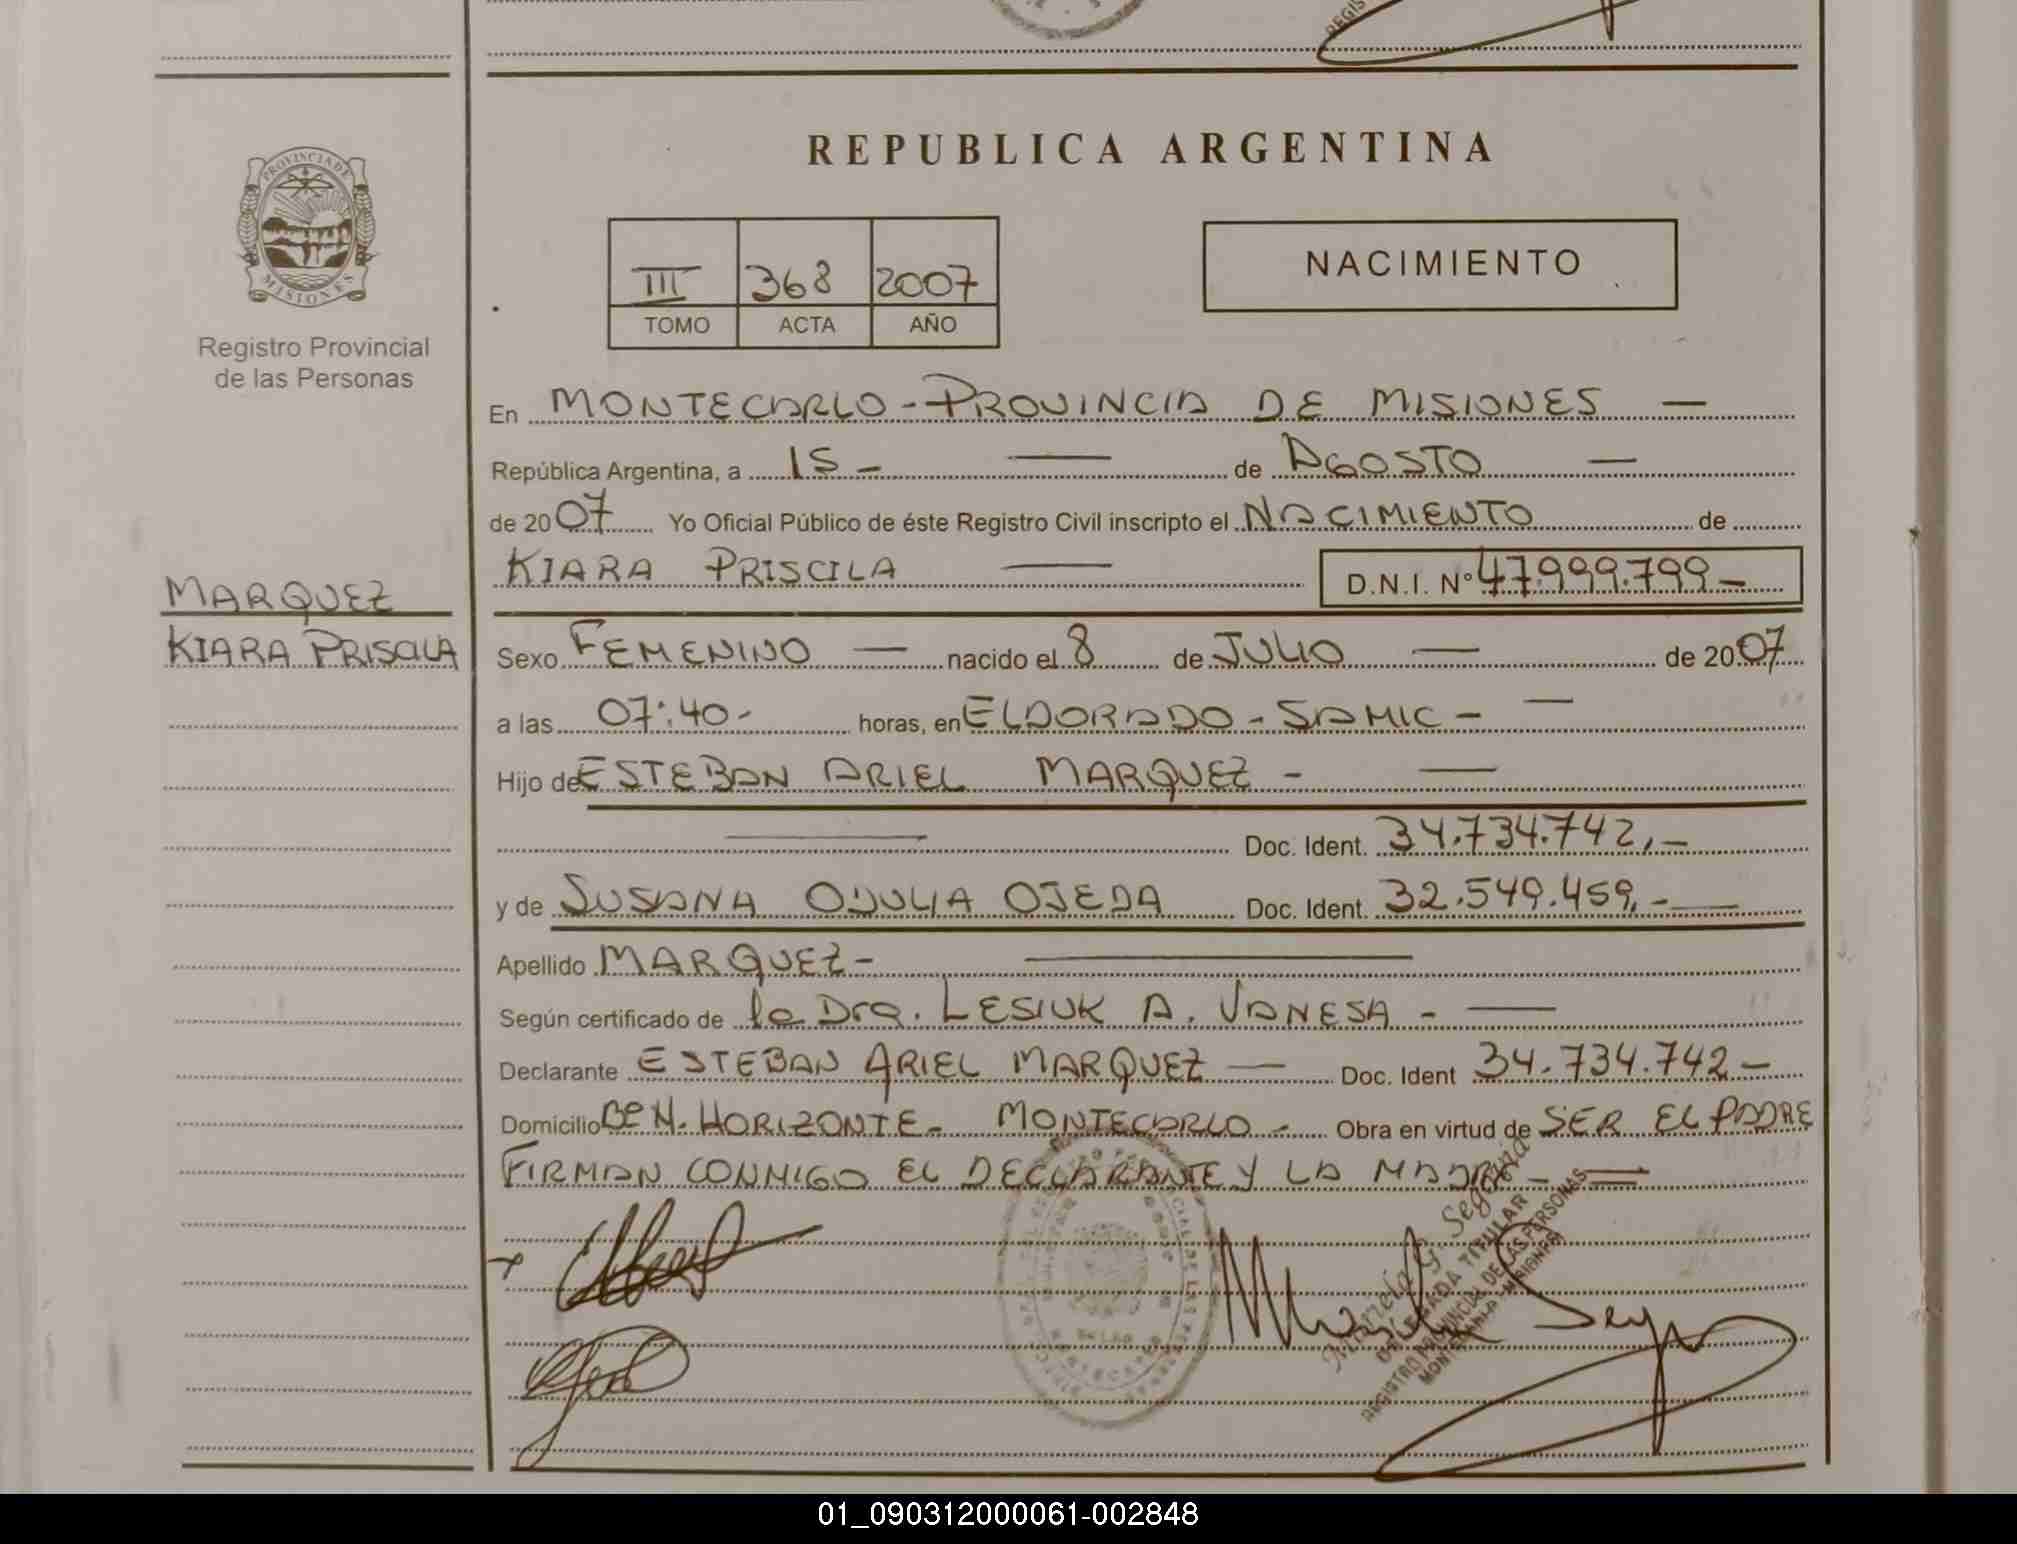 REPUBLICA ARGENTINA
PROVINCIA DE
MISIONES
Registro Provincial
de las Personas
III 368 2007
TOMO ACTA AÑO
NACIMIENTO
En MONTECARLO - PROVINCIA DE MISIONES —
República Argentina, a 15 - — de AGOSTO —
de 2007 Yo Oficial Público de éste Registro Civil inscripto el NACIMIENTO de
KIARA PRISCILA — D.N.I. Nº 47.999.799 -
MARQUEZ
KIARA PRISCILA
Sexo FEMENINO — nacido el 8 de JULIO — de 2007
a las 07:40 - horas, en ELDORADO - SAMIC - —
Hijo de ESTEBAN ARIEL MARQUEZ - —
— Doc. Ident. 34.734.742,-
y de SUSANA ODULIA OJEDA Doc. Ident. 32.549.459,- —
Apellido MARQUEZ - —
Según certificado de la Dra. LESIUK A. VANESA - —
Declarante ESTEBAN ARIEL MARQUEZ — Doc. Ident 34.734.742 -
Domicilio Bº N. HORIZONTE - MONTECARLO - Obra en virtud de SER EL PADRE
FIRMAN CONMIGO EL DECLARANTE Y LA MADRE - —
DELEGADA TITULAR
REGISTRO PROVINCIAL DE LAS PERSONAS
01_090312000061-002848